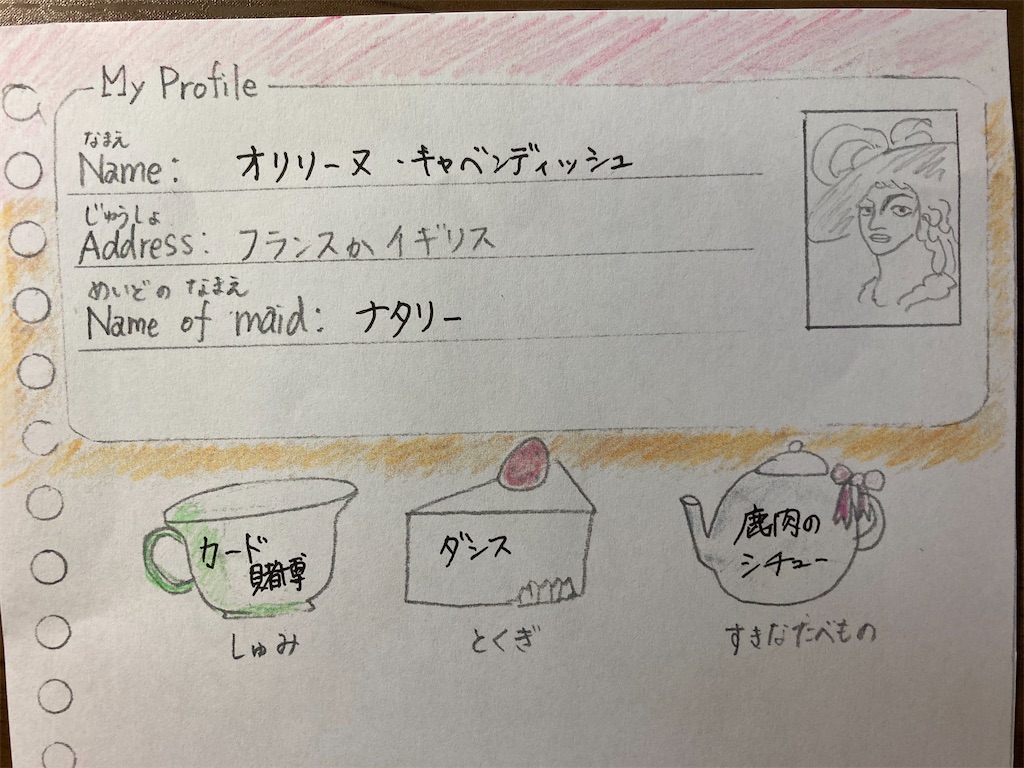 My Profile
なまえ
Name: オリリーヌ・キャベンディッシュ
じゅうしょ
Address: フランスかイギリス
めいどの なまえ
Name of maid: ナタリー
カード
賭博
しゅみ
ダンス
とくぎ
鹿肉の
シチュー
すきなたべもの